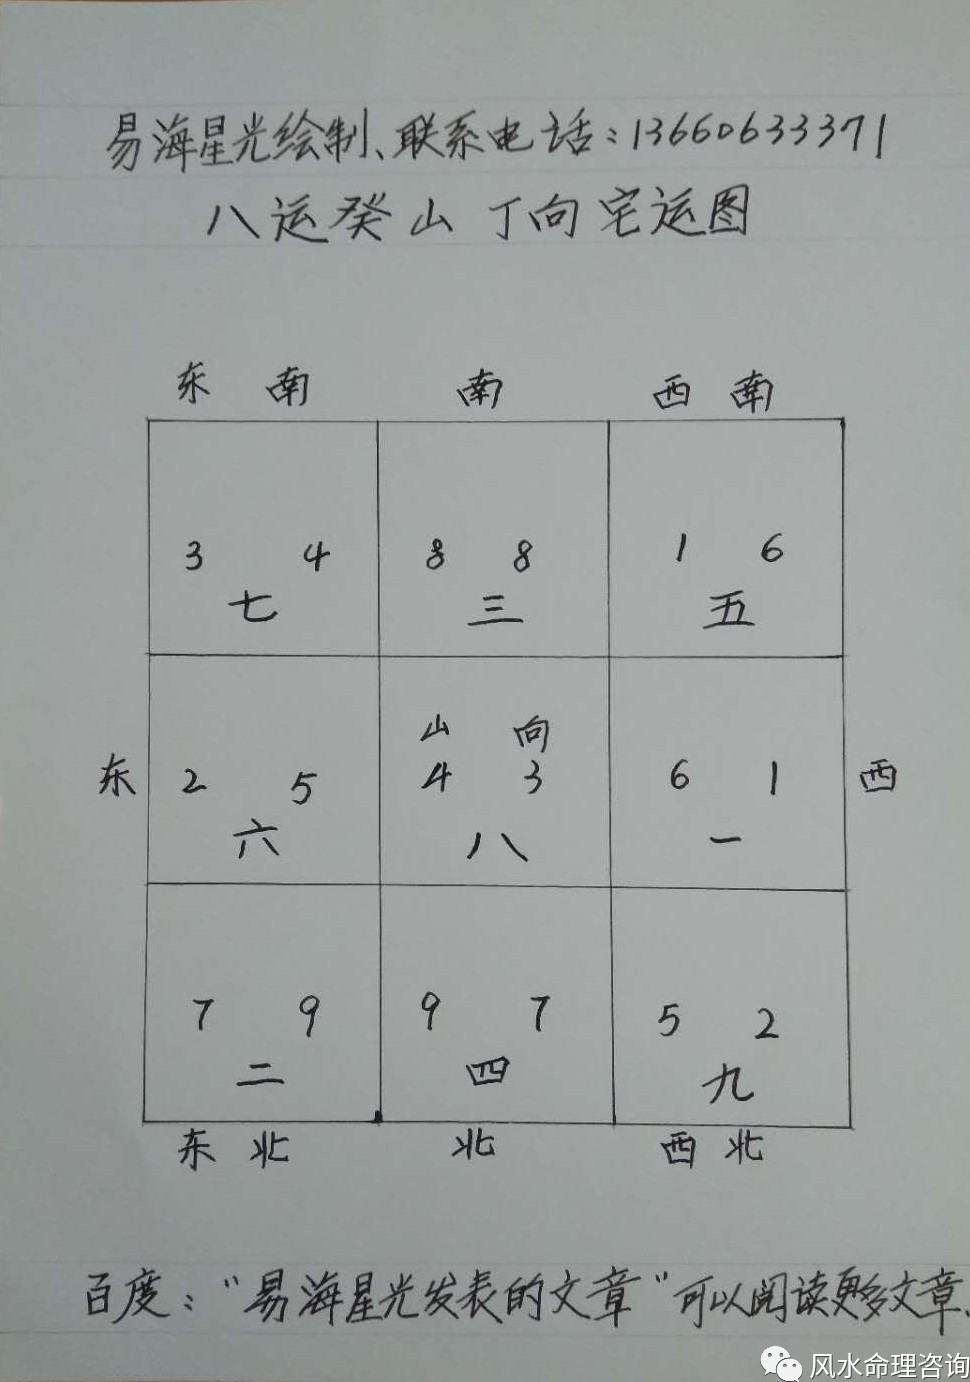 易海星光绘制、联系电话:13660633371
八运癸山丁向宅运图
东南 南 西南
3 4 8 8 1 6
七 三 五
山 向
东 2 5 4 3 6 1 西
六 八 一
7 9 9 7 5 2
二 四 九
东北 北 西北
百度:“易海星光发表的文章”可以阅读更多文章.
风水命理咨询